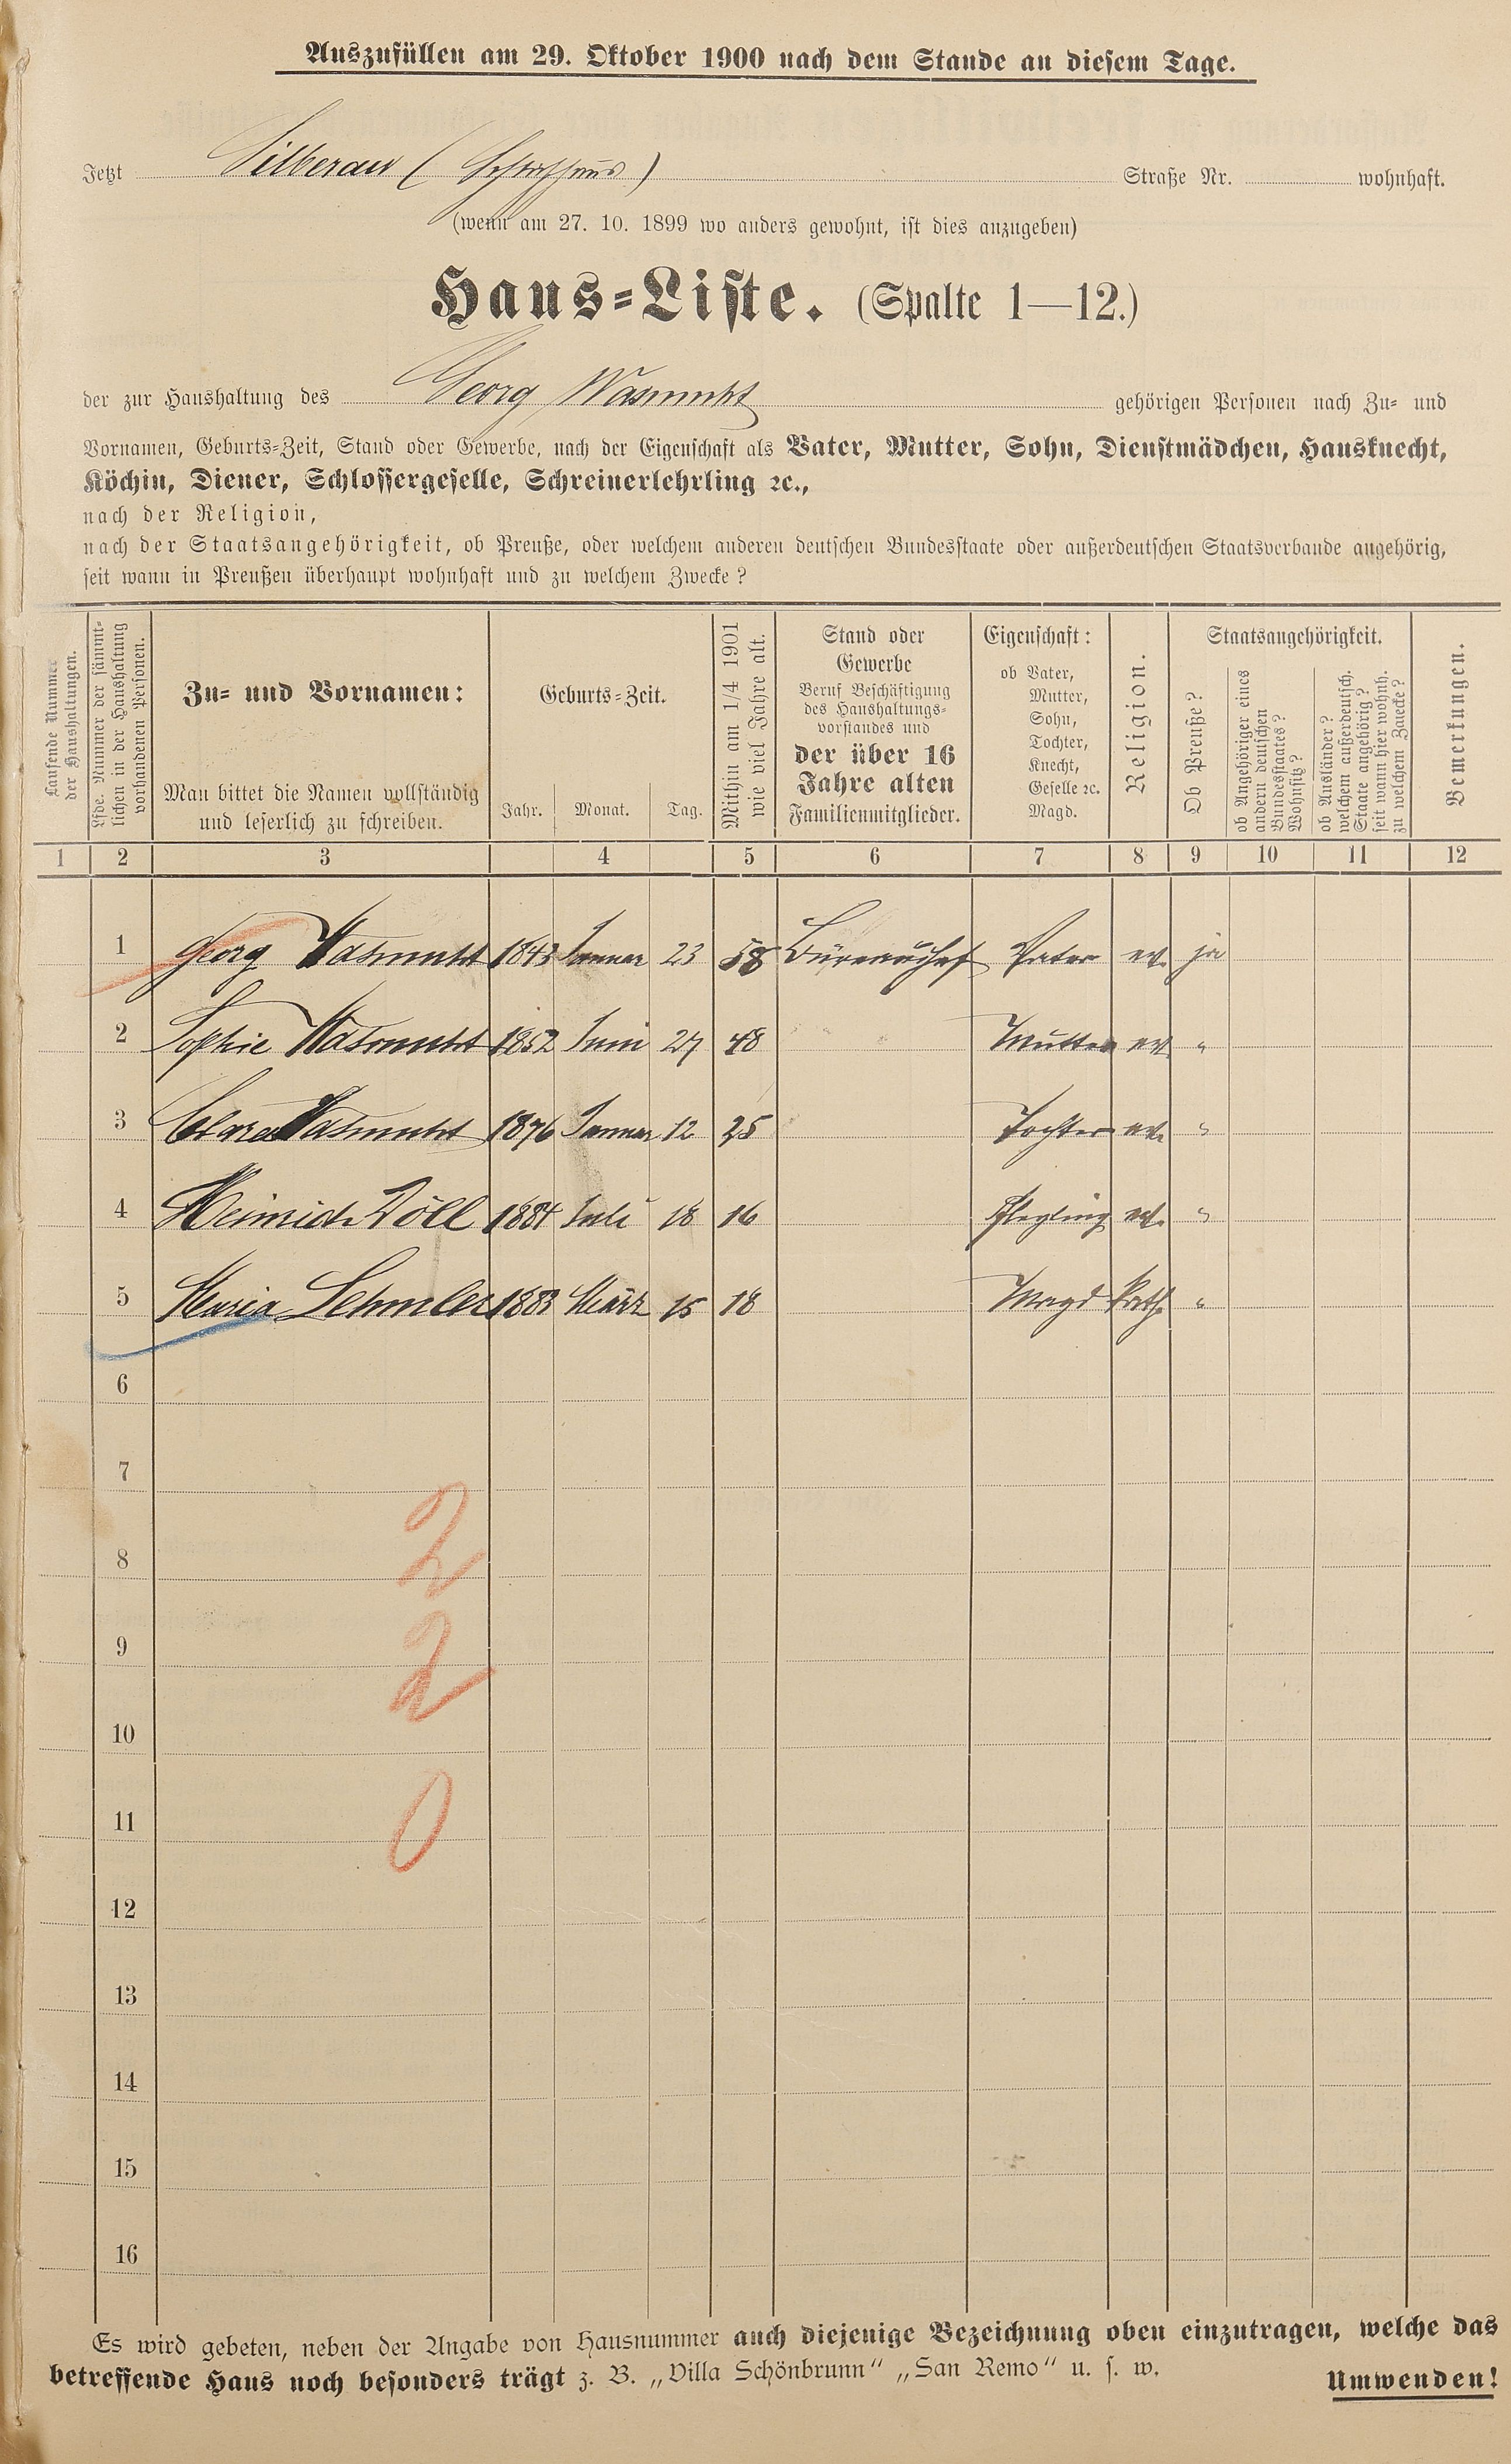 Auszufüllen am 29. Oktober 1900 nach dem Stande an diesem Tage.
Jetzt Silberau ( ) Straße Nr. wohnhaft.
(wenn am 27. 10. 1899 wo anders gewohnt, ist dies anzugeben)
Haus-Liste. (Spalte 1—12.)
der zur Haushaltung des Georg Wasmuht gehörigen Personen nach Zu- und
Vornamen, Geburts-Zeit, Stand oder Gewerbe, nach der Eigenschaft als Vater, Mutter, Sohn, Dienstmädchen, Hausknecht,
Köchin, Diener, Schlossergeselle, Schreinerlehrling ꝛc.,
nach der Religion,
nach der Staatsangehörigkeit, ob Preuße, oder welchem anderen deutschen Bundesstaate oder außerdeutschen Staatsverbande angehörig,
seit wann in Preußen überhaupt wohnhaft und zu welchem Zwecke?
Laufende Nummer
der Haushaltungen.
Lfde. Nummer der sämmt-
lichen in der Haushaltung
vorhandenen Personen.
Zu- und Vornamen:
Man bittet die Namen vollständig
und leserlich zu schreiben.
Geburts-Zeit.
Jahr. Monat. Tag.
Mithin am 1/4 1901
wie viel Jahre alt.
Stand oder
Gewerbe
Beruf Beschäftigung
des Haushaltungs-
vorstandes und
der über 16
Jahre alten
Familienmitglieder.
Eigenschaft:
ob Vater,
Mutter,
Sohn,
Tochter,
Knecht,
Geselle ꝛc.
Magd.
Religion.
Staatsangehörigkeit.
Ob Preuße?
ob Angehöriger eines
andern deutschen
Bundesstaates?
Wohnsitz?
ob Ausländer?
welchem außerdeutsch.
Staate angehörig?
seit wann hier wohnh.
zu welchem Zwecke?
Bemerkungen.
1 2 3 4 5 6 7 8 9 10 11 12
1 Georg Wasmuht 1843 Januar 23 58 Büreauchef Vater ev. ja
2 Sophie Wasmuht 1852 Juni 27 48 Mutter ev. "
3 Clara Wasmuht 1876 Januar 12 25 Tochter ev. "
4 Heinrich Döll 1884 Juli 18 16 Pflegling ev. "
5 Maria Lehmler 1883 März 15 18 Magd kath. "
6
7
2
8
9
2
10
11
0
12
13
14
15
16
Es wird gebeten, neben der Angabe von Hausnummer auch diejenige Bezeichnung oben einzutragen, welche das
betreffende Haus noch besonders trägt z. B. „Villa Schönbrunn“ „San Remo“ u. s. w.
Umwenden!